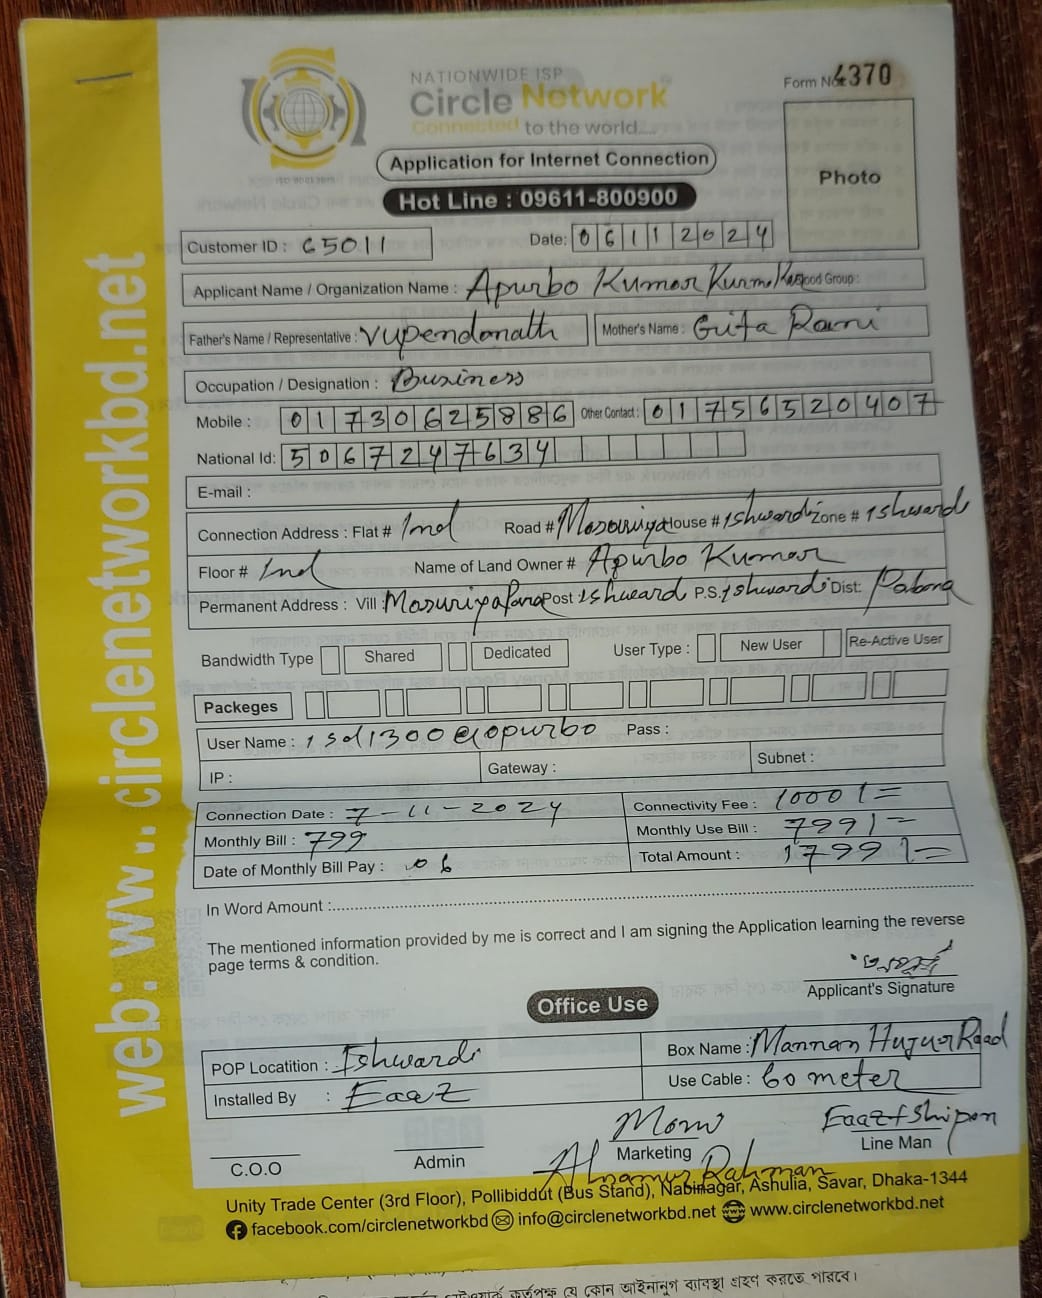 NATIONWIDE ISP
Circle Network
Connected to the world....
Form No: 4370
Application for Internet Connection
Photo
Hot Line : 09611-800900
Customer ID : 65011 Date: 06112024
Applicant Name / Organization Name : Apurbo Kumar Kurmokar Blood Group :
Father's Name / Representative : Vupendanath Mother's Name : Gita Rani
Occupation / Designation : Business
Mobile : 01730625886 Other Contact : 01756520407
National Id: 5067247634
E-mail :
Connection Address : Flat # Ind Road # Masuriya House # Ishwardi Zone # Ishwardi
Floor # Ind Name of Land Owner # Apurbo Kumar
Permanent Address : Vill Masuriyapara Post Ishwardi P.S. Ishwardi Dist: Pabna
Bandwidth Type Shared Dedicated User Type : New User Re-Active User
Packeges
User Name : isd1300@apurbo Pass :
IP : Gateway : Subnet :
Connection Date : 7-11-2024 Connectivity Fee : 1000/=
Monthly Bill : 799 Monthly Use Bill : 799/=
Date of Monthly Bill Pay : 06 Total Amount : 1799/=
In Word Amount :
The mentioned information provided by me is correct and I am signing the Application learning the reverse
page terms & condition.
Applicant's Signature
Office Use
POP Locatition : Ishwardi Box Name : Mannan Hujur Road
Installed By : Eaaz Use Cable : 60 meter
Eaaz+Shipon
C.O.O Admin Marketing Line Man
Unity Trade Center (3rd Floor), Pollibiddut (Bus Stand), Nabinagar, Ashulia, Savar, Dhaka-1344
facebook.com/circlenetworkbd info@circlenetworkbd.net www.circlenetworkbd.net
web: ww.. circlenetworkbd.net
কর্তৃপক্ষ যে কোন আইনানুগ ব্যবস্থা গ্রহণ করতে পারবে।